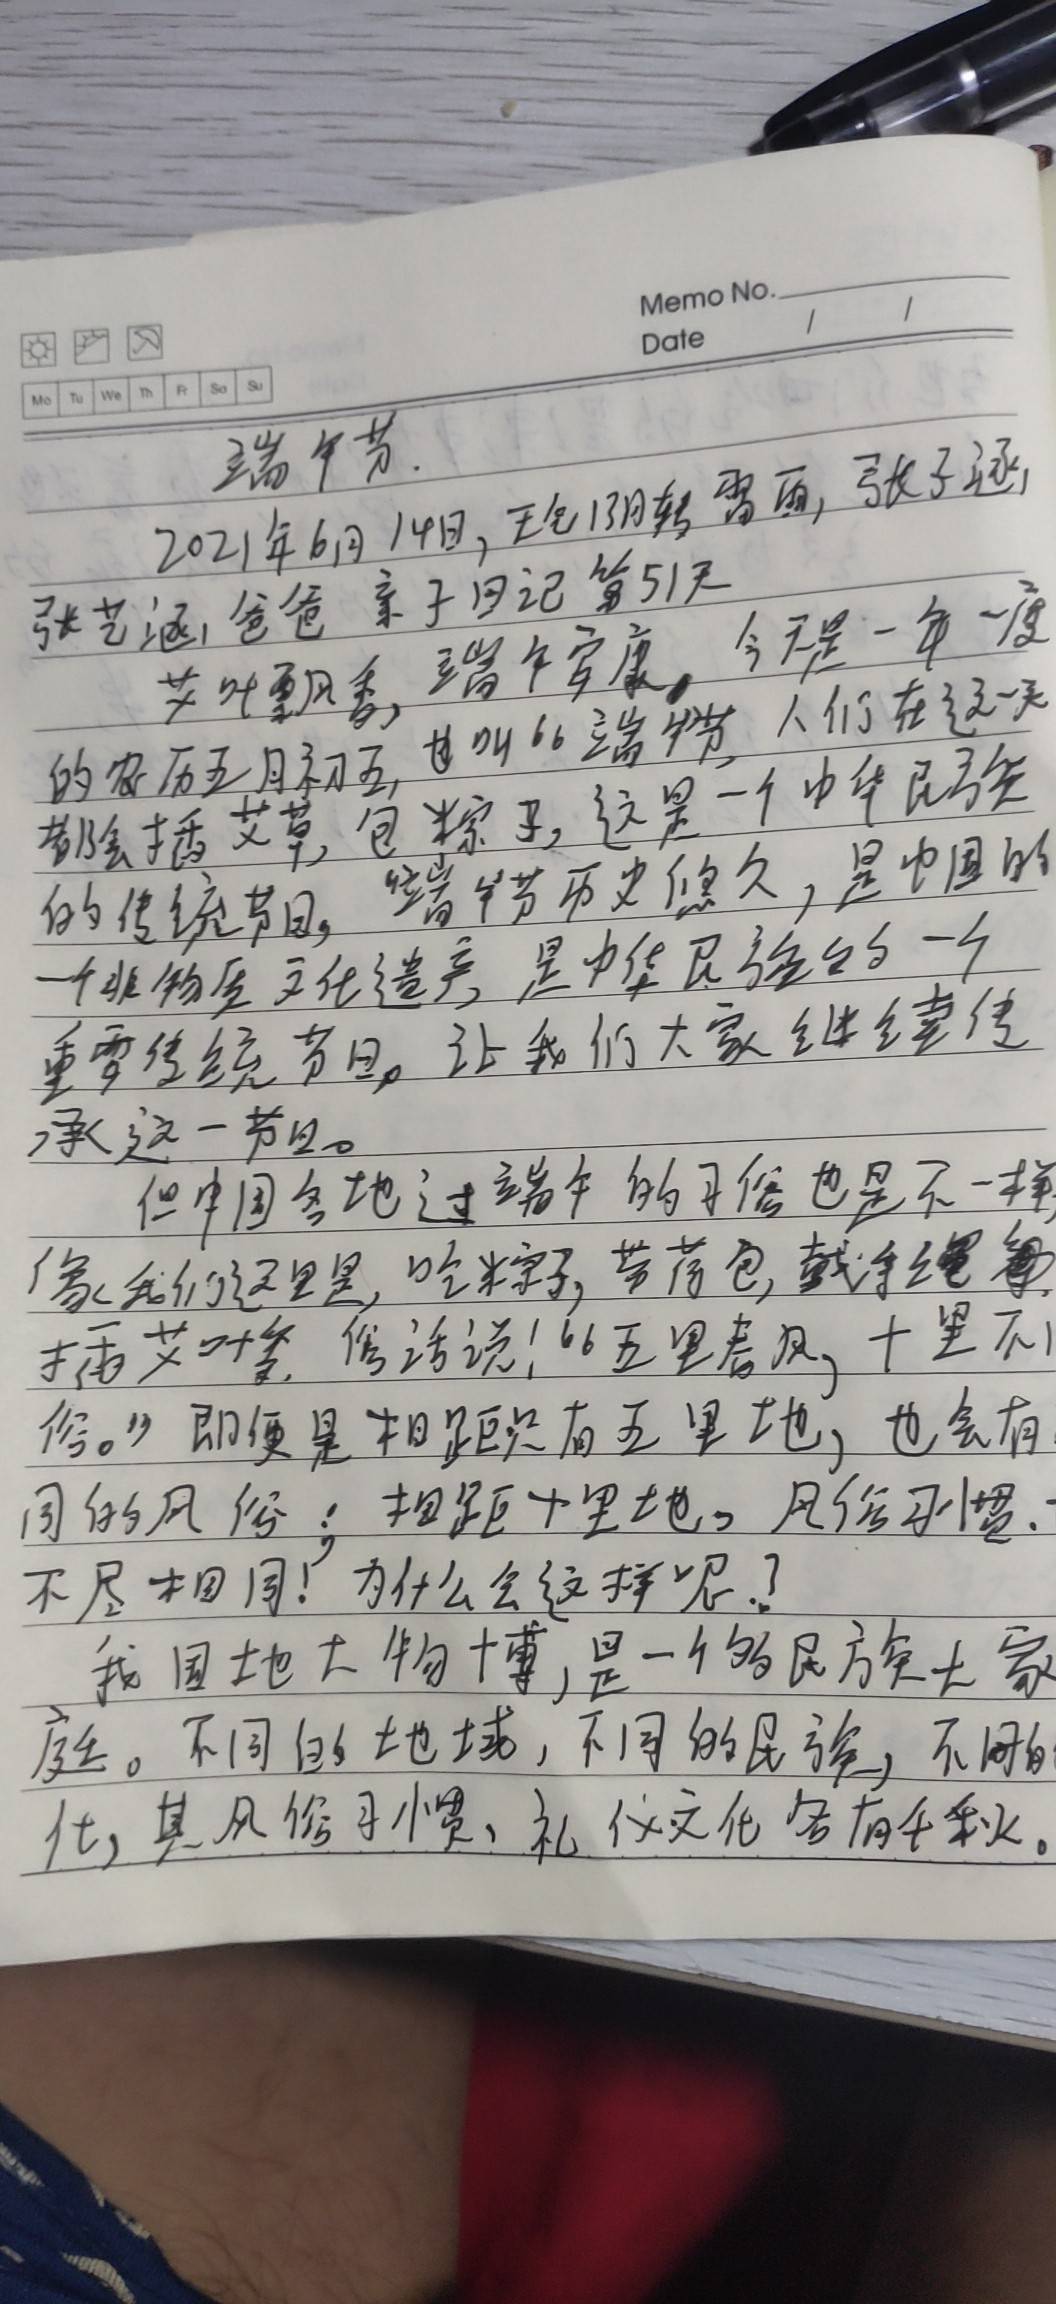 Memo No.
Date / /
Mo Tu We Th Fr Sa Su
端午节.
2021年6月14日,天气阴转雷雨,张子涵,
张艺涵,爸爸 亲子日记 第51天
艾叶飘香,端午安康。今天是一年一度
的农历五月初五,也叫“端午节,人们在这一天
都会插艾草,包粽子,这是一个中华民族
的传统节日。端午节历史悠久,是中国的
一个非物质文化遗产,是中华民族的一个
重要传统节日。让我们大家继续传
承这一节日。
但中国各地过端午的习俗也是不一样,
像我们这里是,吃粽子,带荷包,戴手绳
插艾叶等.俗话说!“五里春风,十里不
俗。”即便是相距只有五里地,也会有
同的风俗;相距十里地。风俗习惯.
不尽相同!为什么会这样呢?
我国地大物博,是一个多民族大家
庭。不同的地域,不同的民族,不同的
化,其风俗习惯、礼仪文化各有千秋。